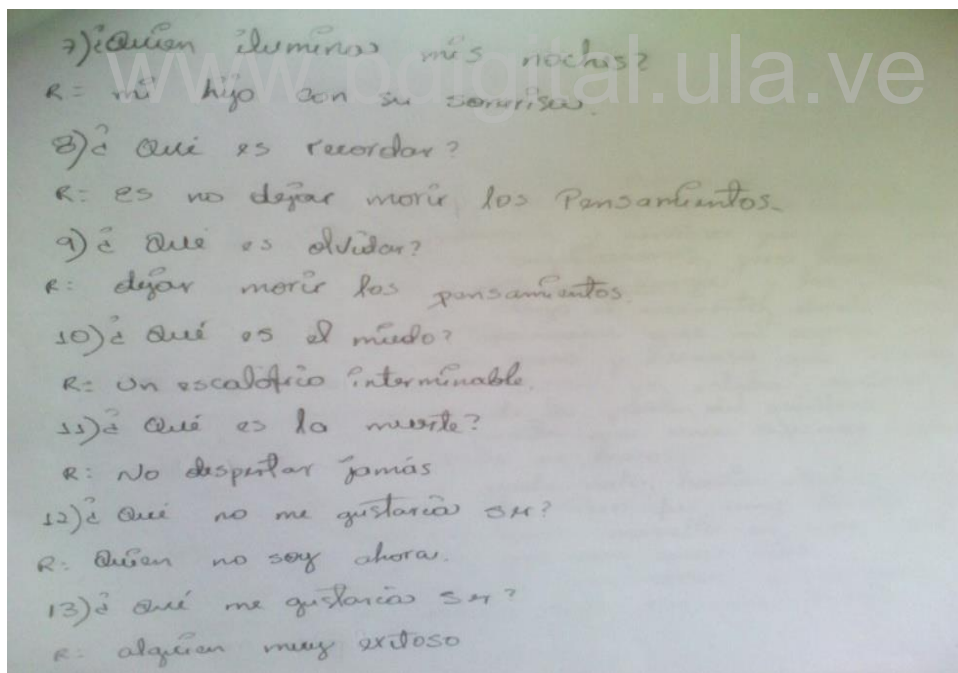 7) ¿Quien ilumina mis noches?
www.bdigital.ula.ve
R= mi hijo con su sonrisa.
8) ¿Qué es recordar?
R= es no dejar morir los Pensamientos.
9) ¿Qué es olvidar?
R: dejar morir los pensamientos.
10) ¿Qué es el miedo?
R= Un escalofrio interminable.
11) ¿Qué es la muerte?
R: No despertar jamás
12) ¿Qué no me gustaria ser?
R: Quien no soy ahora.
13) ¿Qué me gustaria ser?
R: alguien muy exitoso